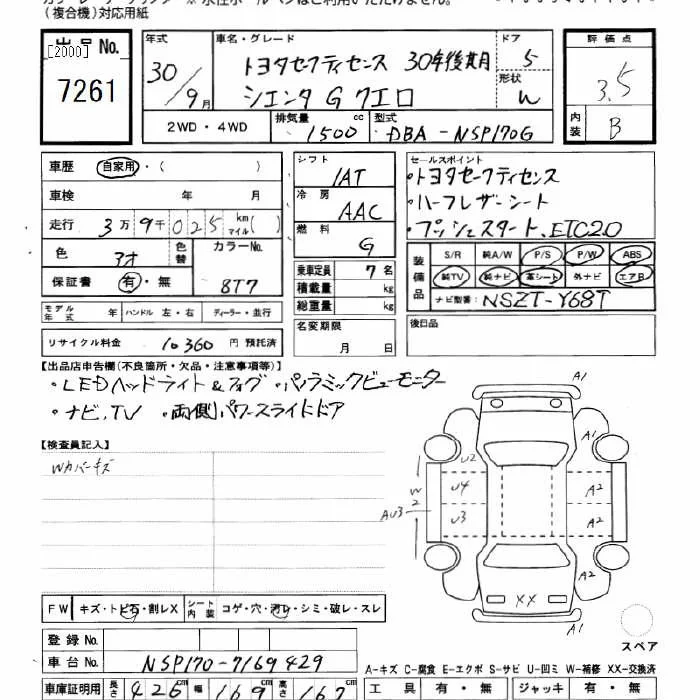 (複合機)対応用紙
出品No.
[2000]
7261
年式
30/9月
車名・グレード
トヨタセーフティセンス 30年後期
シエンタ G クエロ
ドア
5
形状
W
評価点
3.5
内装
B
2WD・4WD
排気量
1500
cc
型式
DBA-NSP170G
車歴
自家用・( )
車検 年 月
走行 3万9千025 km マイル( )
色 アオ
色替
カラーNo.
8T7
保証書 有・無
モデル年式 年
ハンドル 左・右
ディーラー・並行
リサイクル料金 10360円 預託済
シフト
IAT
冷房
AAC
燃料
G
乗車定員 7名
積載量 kg
総重量 kg
名変期限
月 日
セールスポイント
・トヨタセーフティセンス
・ハーフレザーシート
・プッシュスタート、ETC2.0
装備品
S/R 純A/W P/S P/W ABS
純TV 純ナビ 革シート 外ナビ エアB
ナビ型番: NSZT-Y68T
後日品
【出品店申告欄(不良箇所・欠品・注意事項等)】
・LEDヘッドライト&フォグ ・パノラミックビューモニター
・ナビ、TV ・両側パワースライドドア
【検査員記入】
Wカバーキズ
A1
A1
U2
U4
U3
W2
AU3
A2
A2
A2
XX
A1
スペア
FW キズ・トビ石・割レX
シート内装 コゲ・穴・汚レ・シミ・破レ・スレ
登録No.
車台No. NSP170-7169429
A-キズ C-腐食 E-エクボ S-サビ U-凹ミ W-補修 XX-交換済
車庫証明用 長さ 426cm 幅 169cm 高さ 167
工具 有・無 ジャッキ 有・無